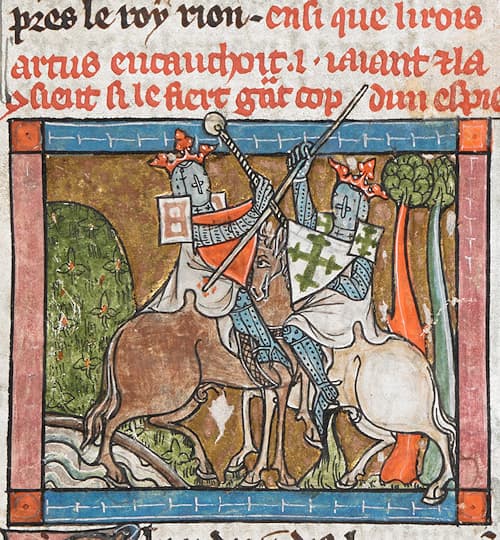 pres le roy rion- ensi que li rois
artus encauchoit .i. iaiant ⁊ la
sieut si le fiert cop dun espie